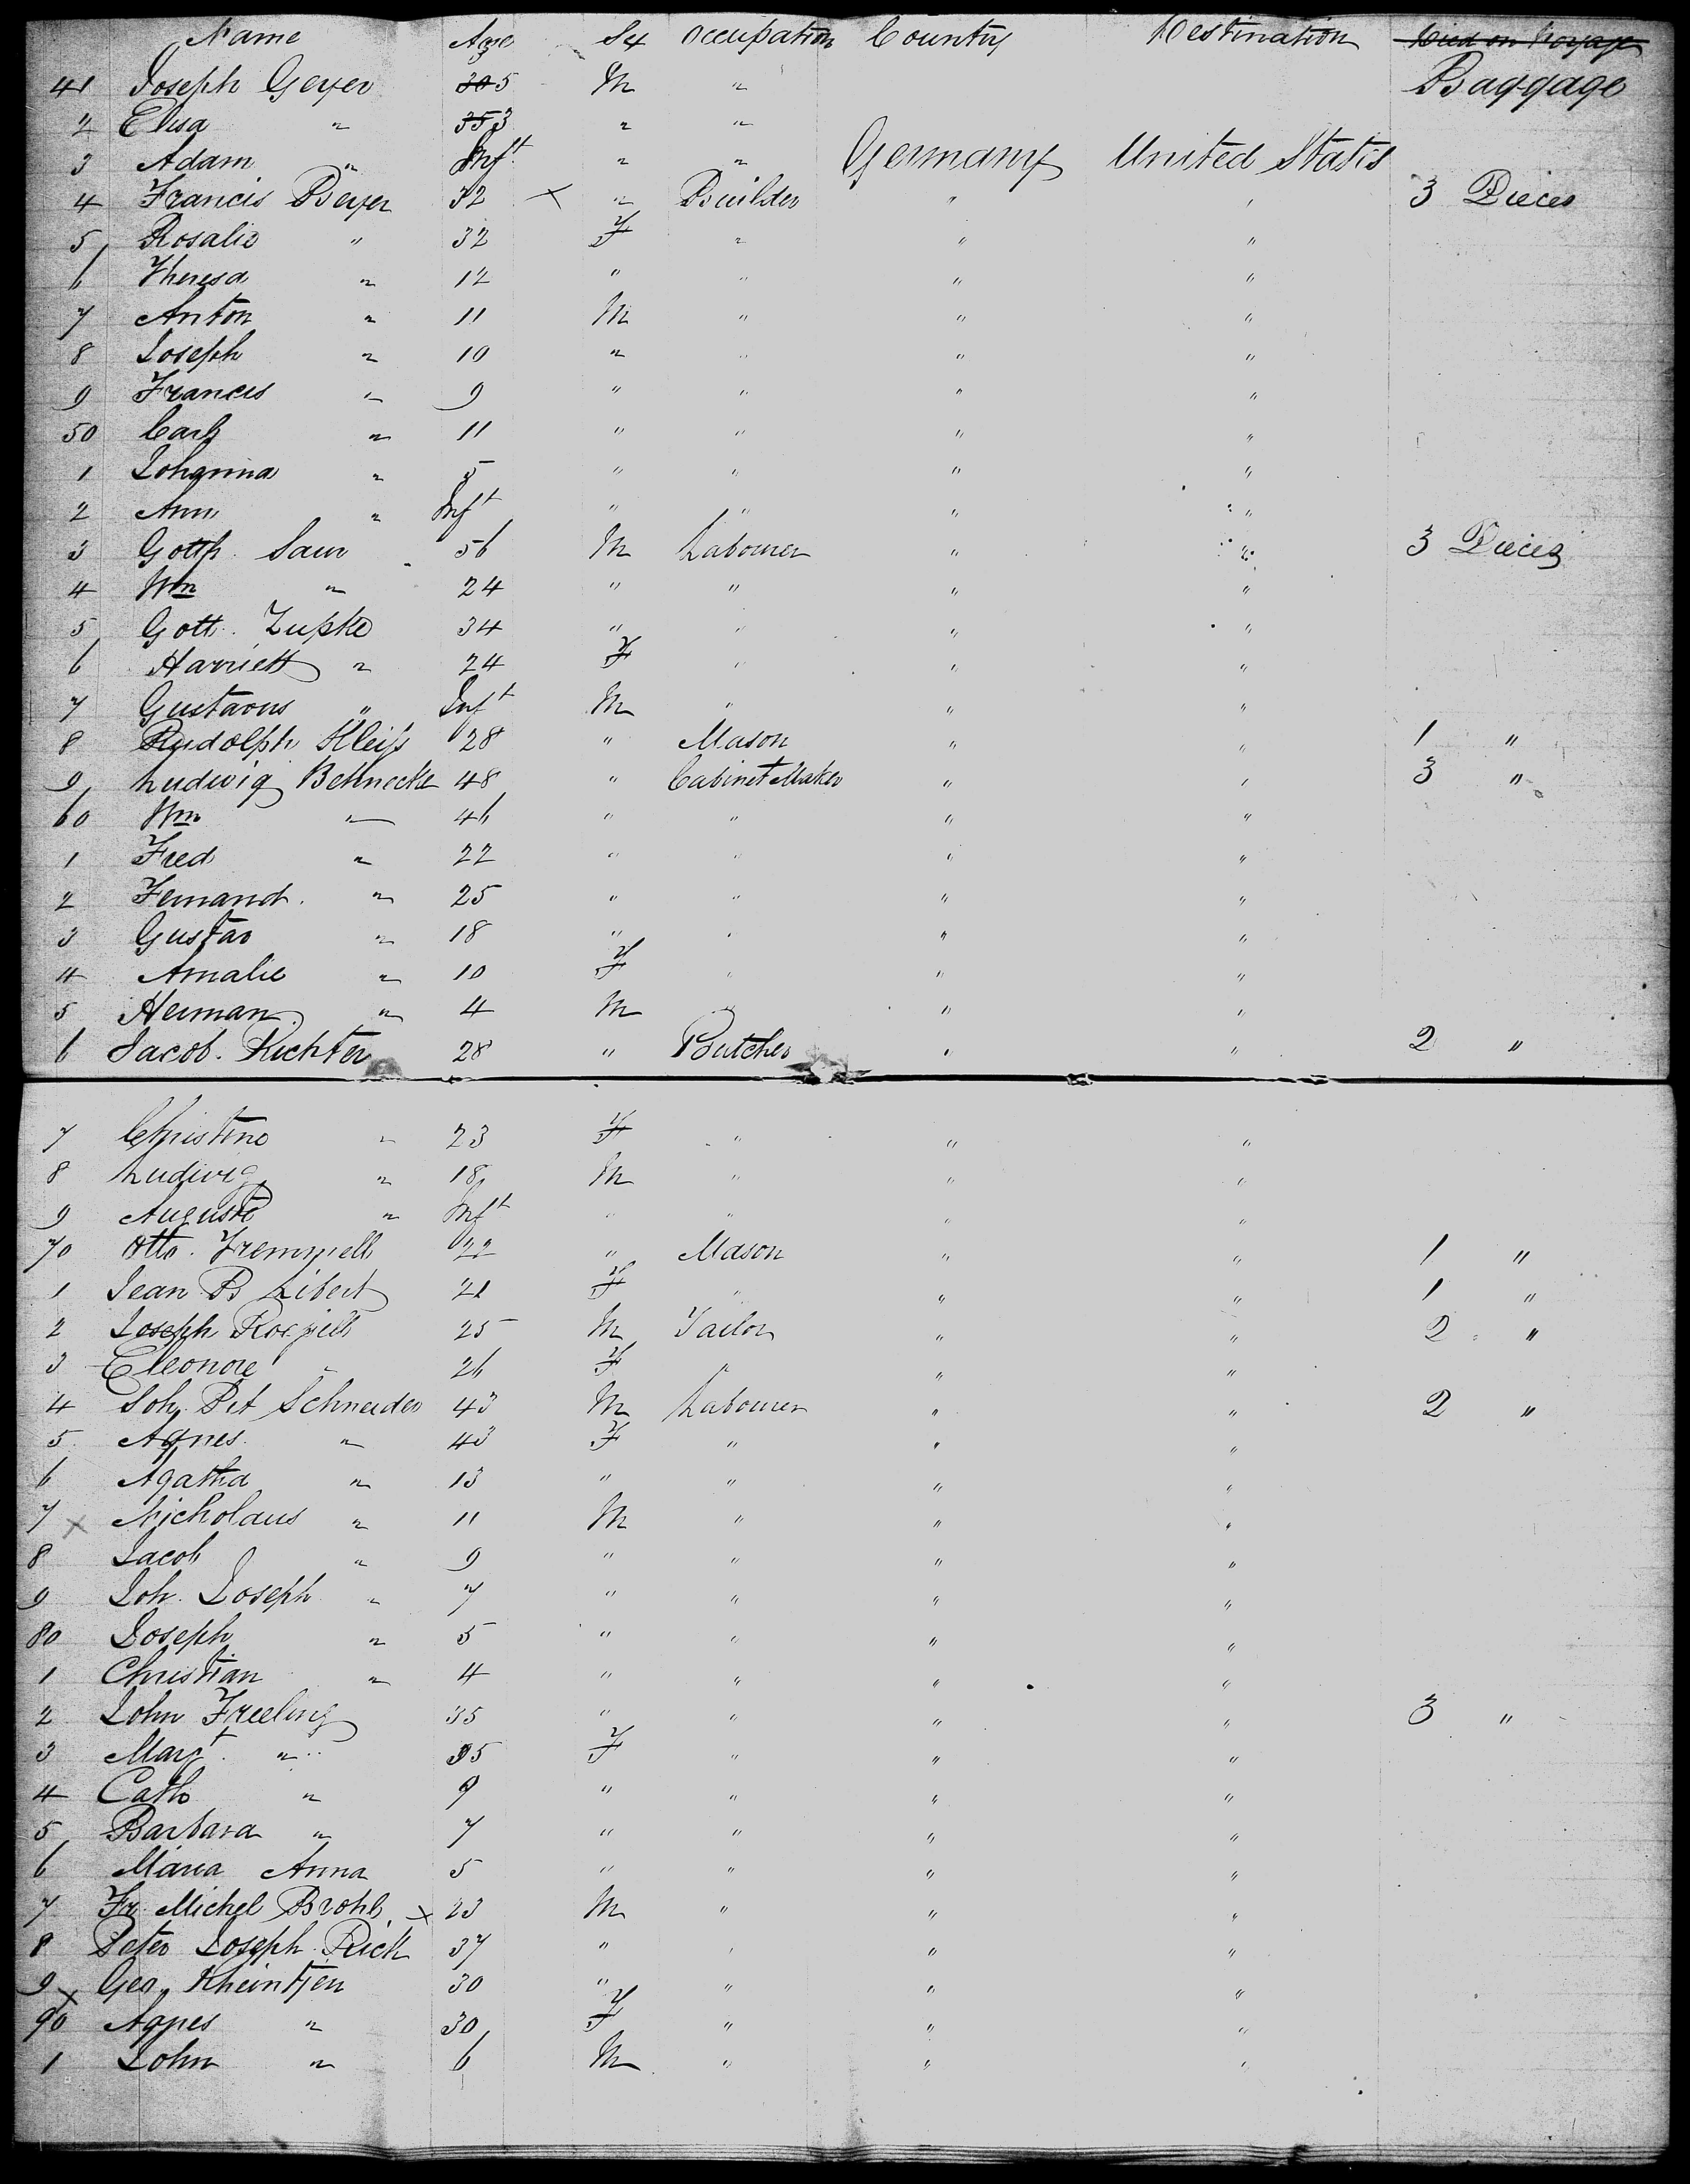 Name Age Sex Occupation Country Destination Died on Voyage
41 Joseph Geyer 30 5 M " Baggage
2 Elisa " 35 3 " "
3 Adam " Inft " " Germany United States
4 Francis Beyer 32 X " Builder " " 3 Pieces
5 Rosalie " 32 F " " "
6 Theresa " 12 " " " "
7 Anton " 11 M " " "
8 Joseph " 10 " " " "
9 Francis " 9 " " " "
50 Carl " 11 " " " "
1 Johanna " 5 " " " "
2 Ann " Inft " " " "
3 Gottf. Saur 56 M Labourer " " 3 Pieces
4 Wm " 24 " " " "
5 Gott. Zupke 34 " " " "
6 Harriett " 24 F " " "
7 Gustavus " Inft M " " "
8 Rudolph Kleifs 28 " Mason " " 1 "
9 Ludwig Behnecke 48 " Cabinet Maker " " 3 "
60 Wm " 46 " " " "
1 Fred " 22 " " " "
2 Fernand. " 25 " " " "
3 Gustav " 18 " " " "
4 Amalie " 10 F " " "
5 Herman " 4 M " " "
6 Jacob. Richter 28 " Butcher " " 2 "
7 Christine " 23 F " " "
8 Ludwig " 18 M " " "
9 Auguste " Inft " " " "
70 Otto. 22 " Mason " " 1 "
1 Jean B Libert 21 F " " " 1 "
2 Joseph 25 M Tailor " " 2 "
3 Eleonore " 26 F " " "
4 Joh. Pet Schneider 43 M Labourer " " 2 "
5 Agnes " 43 F " " "
6 Agatha " 13 " " " "
7 X Nicholaus " 11 M " " "
8 Jacob " 9 " " " "
9 Joh. Joseph " 7 " " " "
80 Joseph " 5 " " " "
1 Christian " 4 " " " "
2 John Freeling 35 " " " " 3 "
3 Margt. " 35 F " " "
4 Cath " 9 " " " "
5 Barbara " 7 " " " "
6 Maria Anna 5 " " " "
7 Fr. Michel Brohl X 23 M " " "
8 Peter Joseph Rick 37 " " " "
9 X Geo. Rheintjen 30 " " " "
90 Agnes " 30 F " " "
1 John " 6 M " " "